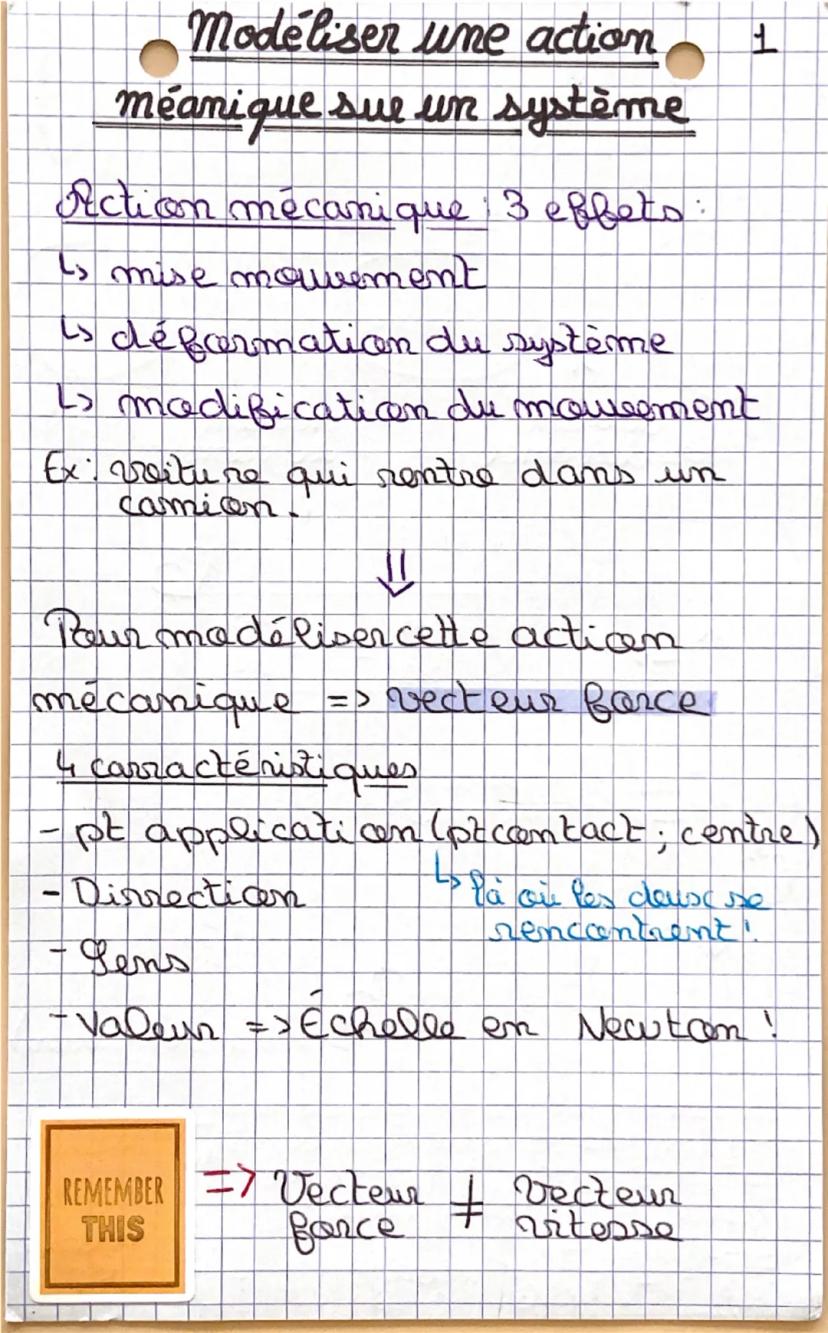 Modéliser une action 1
méanique sue un système
Action mécanique : 3 effets :
↳ mise mouvement
↳ déformation du système
↳ modification du mouvement
Ex : voiture qui rentre dans un
camion.
⇓
Pour modéliser cette action
mécanique => vecteur force
4 carractéristiques
- pt application (pt contact ; centre)
- Dirrection
↳ là où les deux se
rencontrent !
- Sens
- Valeur => Échelle en Newton !
REMEMBER
THIS
=> Vecteur ≠ vecteur
force vitesse